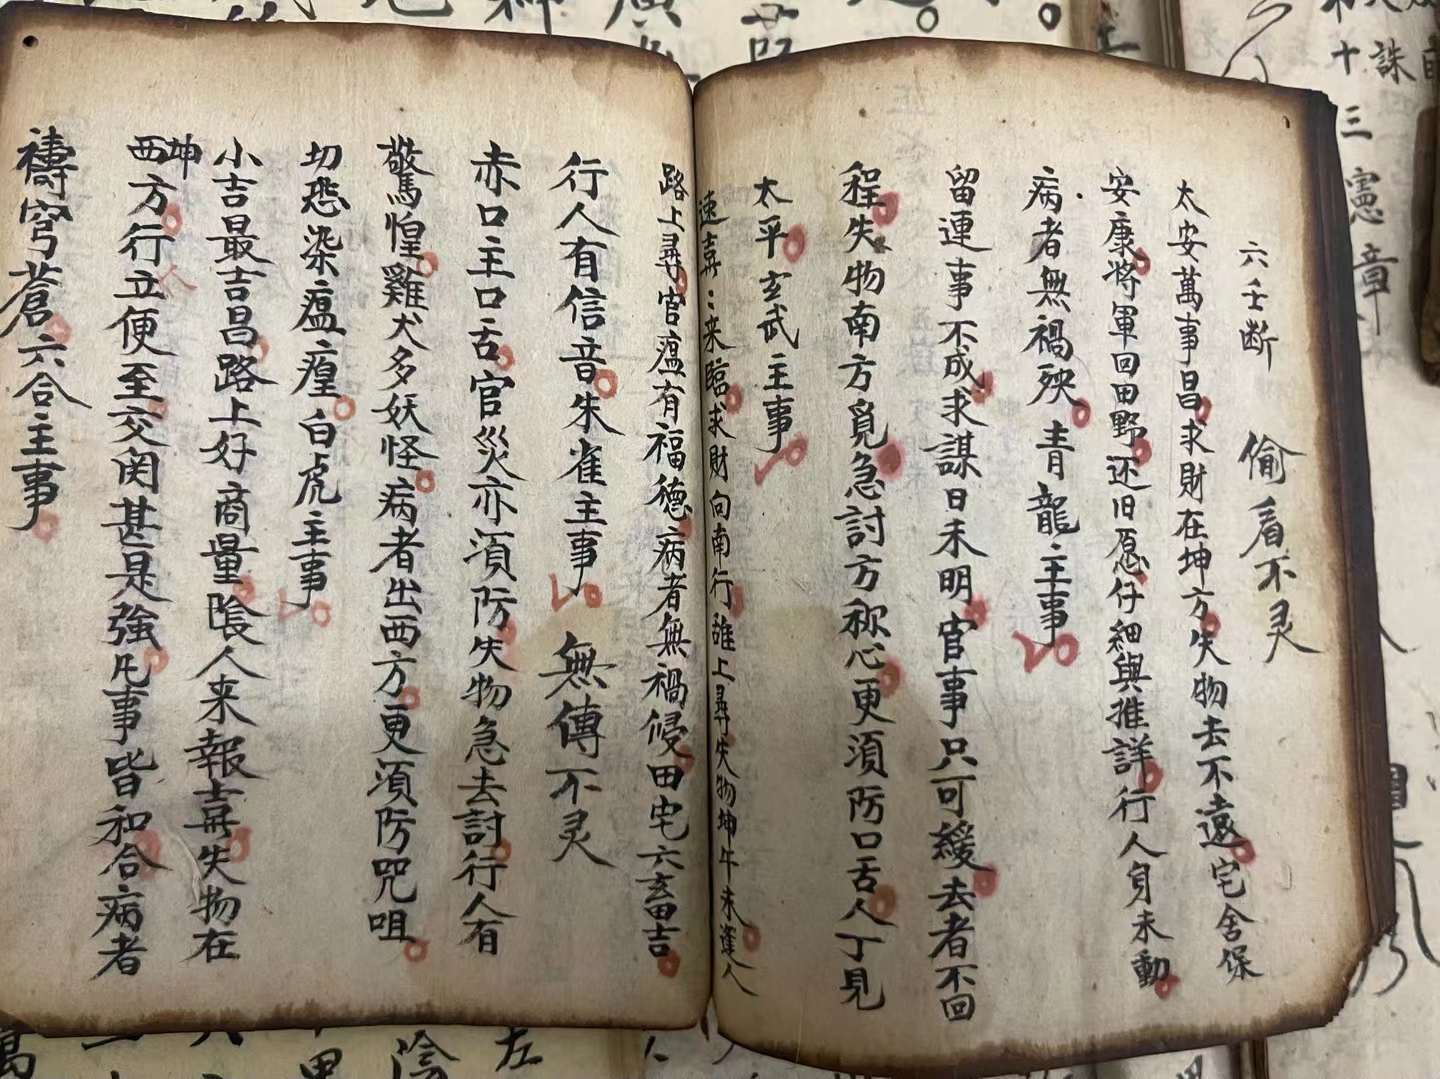 六壬断　偷看不灵
太安萬事昌求財在坤方失物去不遠宅舍保
安康将軍回田野还旧愿仔細與推詳行人身未動
病者無禍殃青龍主事
留連事不成求謀日未明官事只可緩去者不回
程失物南方覓急討方称心更須防口舌人丁見
太平玄武主事
速喜:来臨求財向南行誰上尋失物坤午未逢人
路上尋官瘟有福德病者無禍侵田宅六畜吉
行人有信音朱雀主事　無傳不灵
赤口主口舌官災亦須防失物急去討行人有
驚惶雞犬多妖怪病者出西方更須防咒咀
切恐染瘟瘟白虎主事
小吉最吉昌路上好商量陰人来報喜失物在
坤
西方行立便至交関甚是強凡事皆和合病者
禱穹蒼六合主事
十三憲章
誅
左
陰